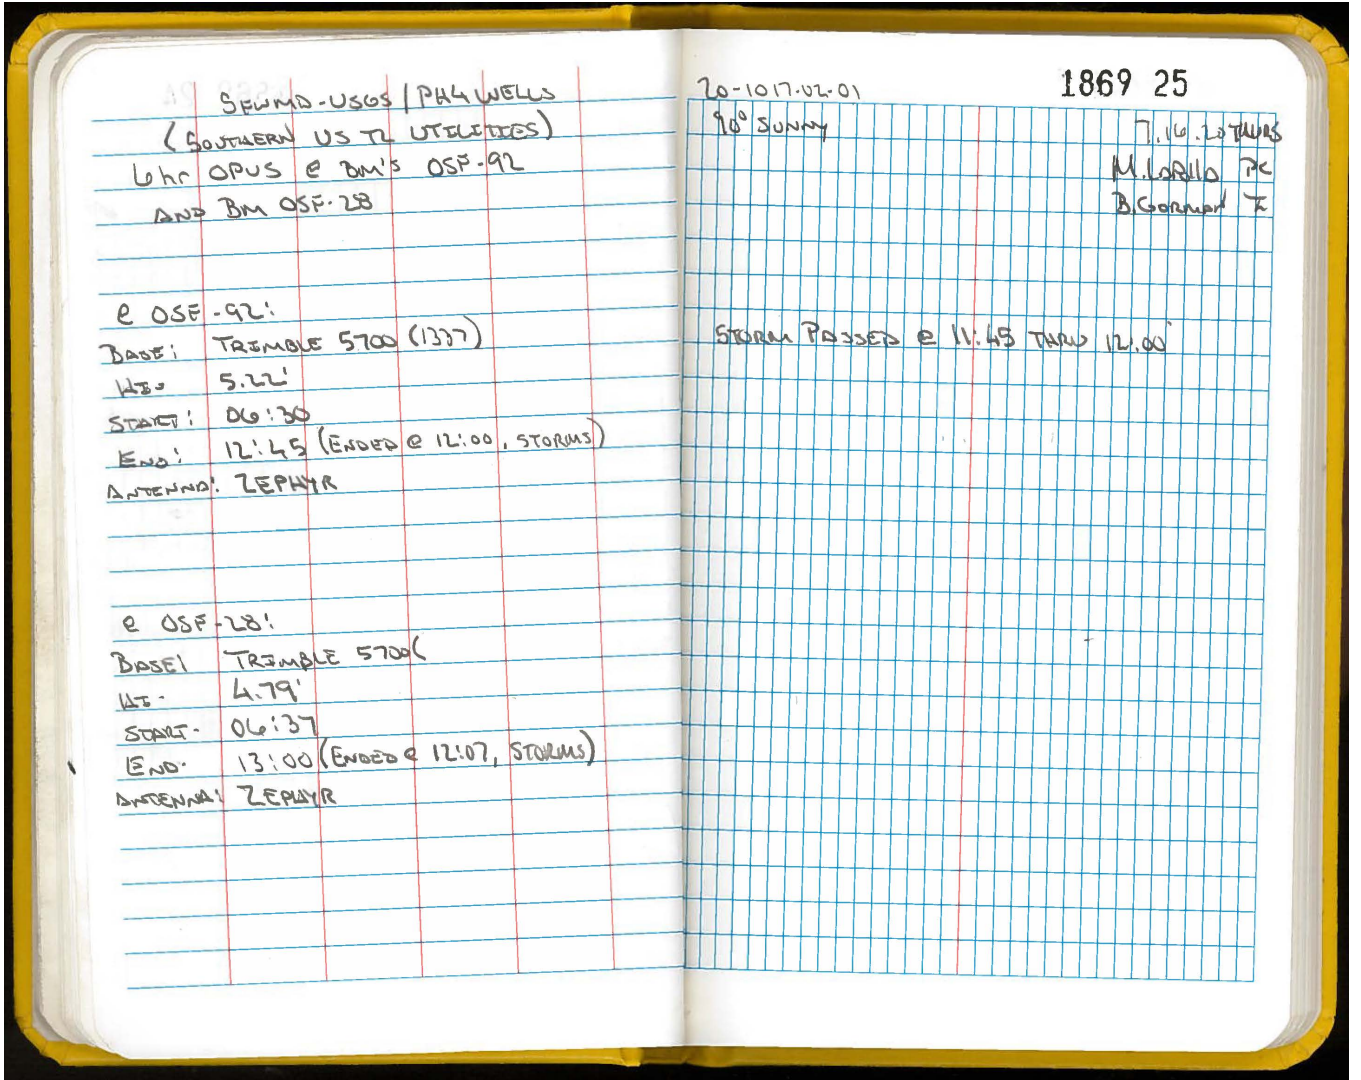 SFWMD-USGS / PH4 WELLS
(SOUTHERN US TL UTILITIES)
6hr OPUS @ BM'S OSF-92
AND BM OSF-28
@ OSF-92:
BASE: TRIMBLE 5700 (1337)
HI- 5.22'
START: 06:30
END: 12:45 (ENDED @ 12:00, STORMS)
ANTENNA: ZEPHYR
@ OSF-28:
BASE: TRIMBLE 5700(
HI- 4.79'
START- 06:37
END- 13:00 (ENDED @ 12:07, STORMS)
ANTENNA: ZEPHYR
20-1017.02-01
1869 25
90° SUNNY
7.16.20 THURS
M. PC
B. GORMAN
STORM PASSED @ 11:45 THRU 12:00